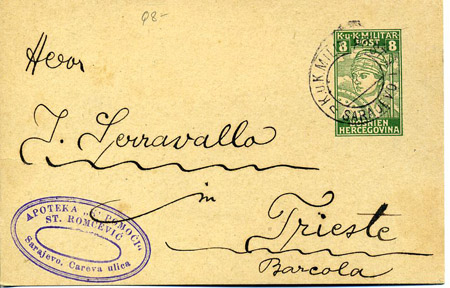 98-
K.u.K. MILITÄR
POST
8 8
BOSNIEN
HERCEGOVINA
SARAJEVO
Herr
J. Serravallo
in
Trieste
Barcola
APOTEKA
ST. ROMČEVIĆ
Sarajevo, Careva ulica